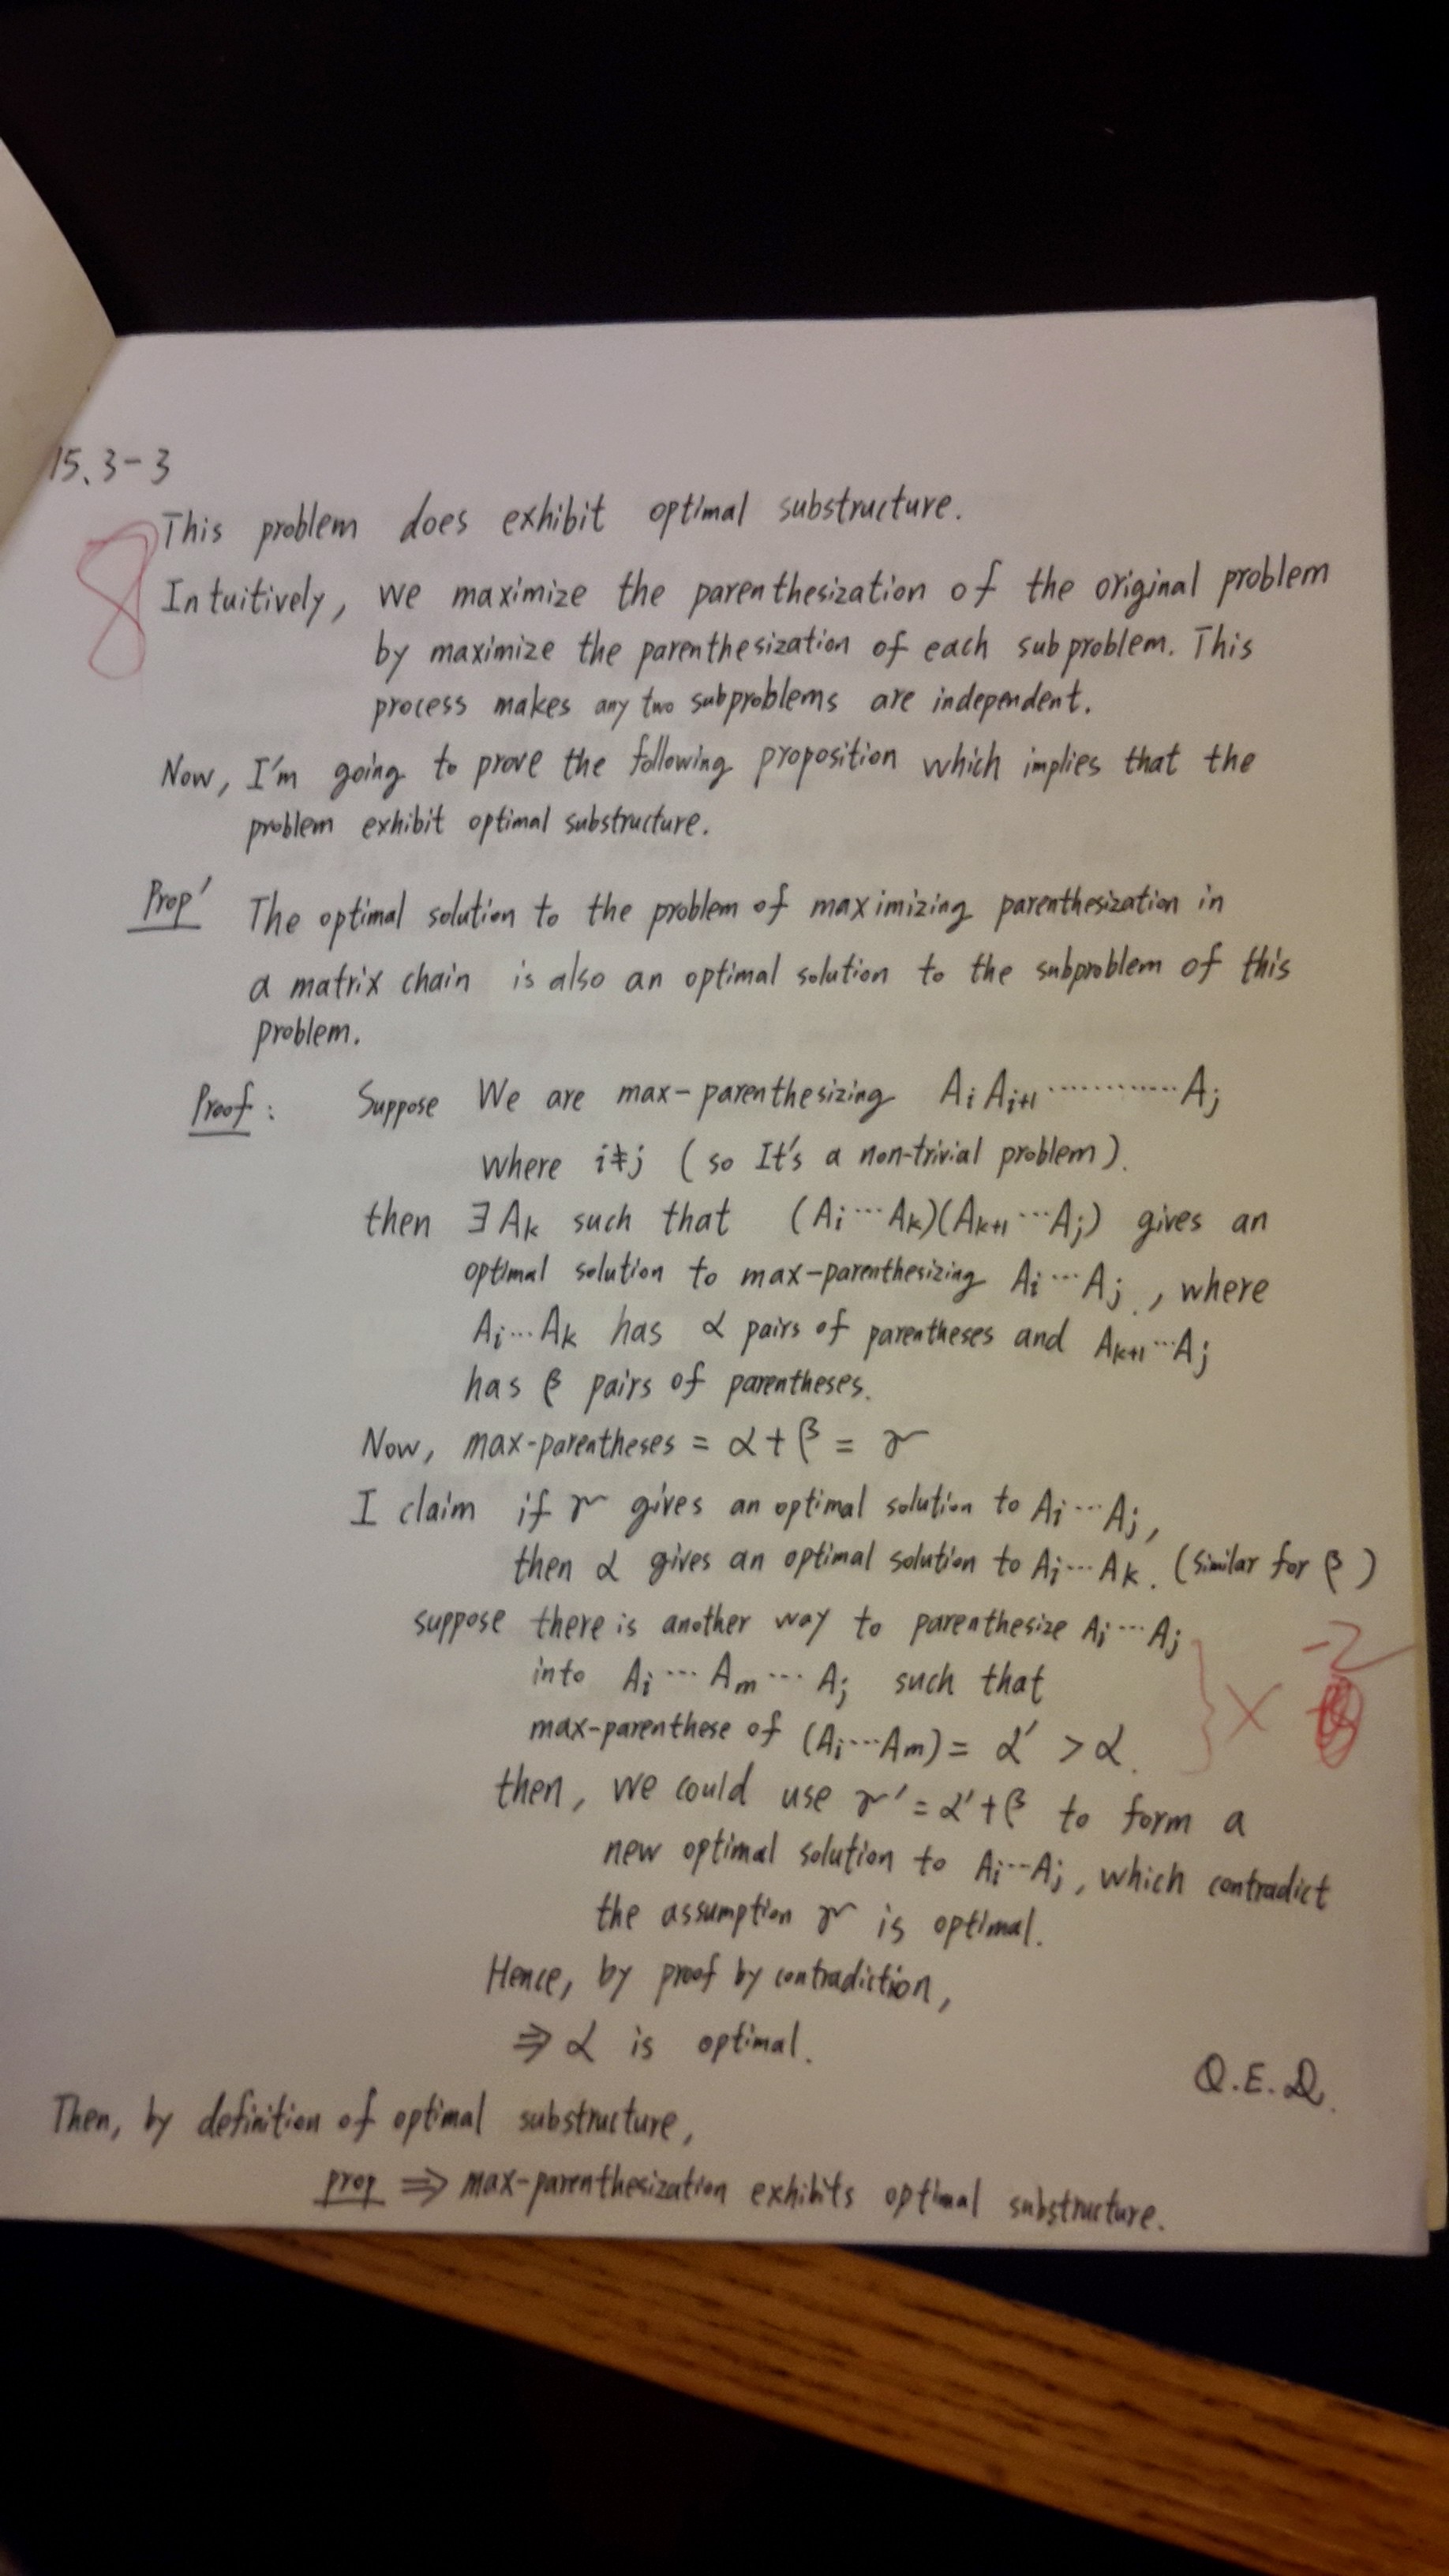 15.3-3
8
This problem does exhibit optimal substructure.
Intuitively, we maximize the parenthesization of the original problem
by maximize the parenthesization of each subproblem. This
process makes any two subproblems are independent.
Now, I'm going to prove the following proposition which implies that the
problem exhibit optimal substructure.
Prop' The optimal solution to the problem of maximizing parenthesization in
a matrix chain is also an optimal solution to the subproblem of this
problem.
Proof: Suppose We are max-parenthesizing Ai Ai+1 ............ Aj
where i≠j (so It's a non-trivial problem).
then ∃ Ak such that (Ai...Ak)(Ak+1...Aj) gives an
optimal solution to max-parenthesizing Ai...Aj, where
Ai...Ak has α pairs of parentheses and Ak+1...Aj
has β pairs of parentheses.
Now, max-parentheses = α+β = γ
I claim if γ gives an optimal solution to Ai...Aj,
then α gives an optimal solution to Ai...Ak. (Similar for β)
suppose there is another way to parenthesize Ai...Aj
into Ai...Am...Aj such that
max-parenthese of (Ai...Am) = α' > α.
} × -2
then, we could use γ' = α'+β to form a
new optimal solution to Ai...Aj, which contradict
the assumption γ is optimal.
Hence, by proof by contradiction,
⇒ α is optimal.
Q.E.D.
Then, by definition of optimal substructure,
prop ⇒ max-parenthesization exhibits optimal substructure.